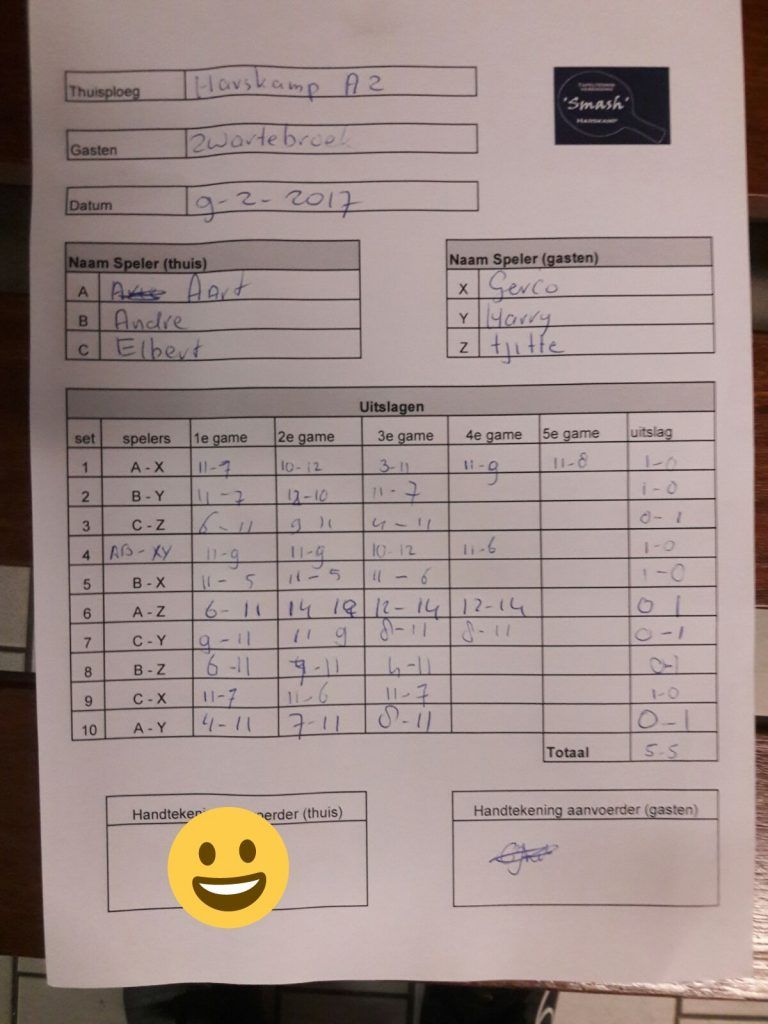 Thuisploeg Harskamp A2
TAFELTENNIS
VERENIGING
'Smash'
HARSKAMP
Gasten Zwartebroek
Datum 9-2-2017
Naam Speler (thuis)
A Aart
B Andre
C Elbert
Naam Speler (gasten)
X Gerco
Y Harry
Z tjitte
Uitslagen
set spelers 1e game 2e game 3e game 4e game 5e game uitslag
1 A - X 11-7 10-12 3-11 11-9 11-8 1-0
2 B - Y 11-7 12-10 11-7 1-0
3 C - Z 6-11 9 11 4-11 0-1
4 AB-XY 11-9 11-9 10-12 11-6 1-0
5 B - X 11-5 11-5 11-6 1-0
6 A - Z 6-11 14 12 12-14 12-14 0 1
7 C - Y 9-11 11 9 8-11 8-11 0-1
8 B - Z 6-11 9-11 4-11 0-1
9 C - X 11-7 11-6 11-7 1-0
10 A - Y 4-11 7-11 8-11 0-1
Totaal 5-5
Handtekening (thuis)
Handtekening aanvoerder (gasten)